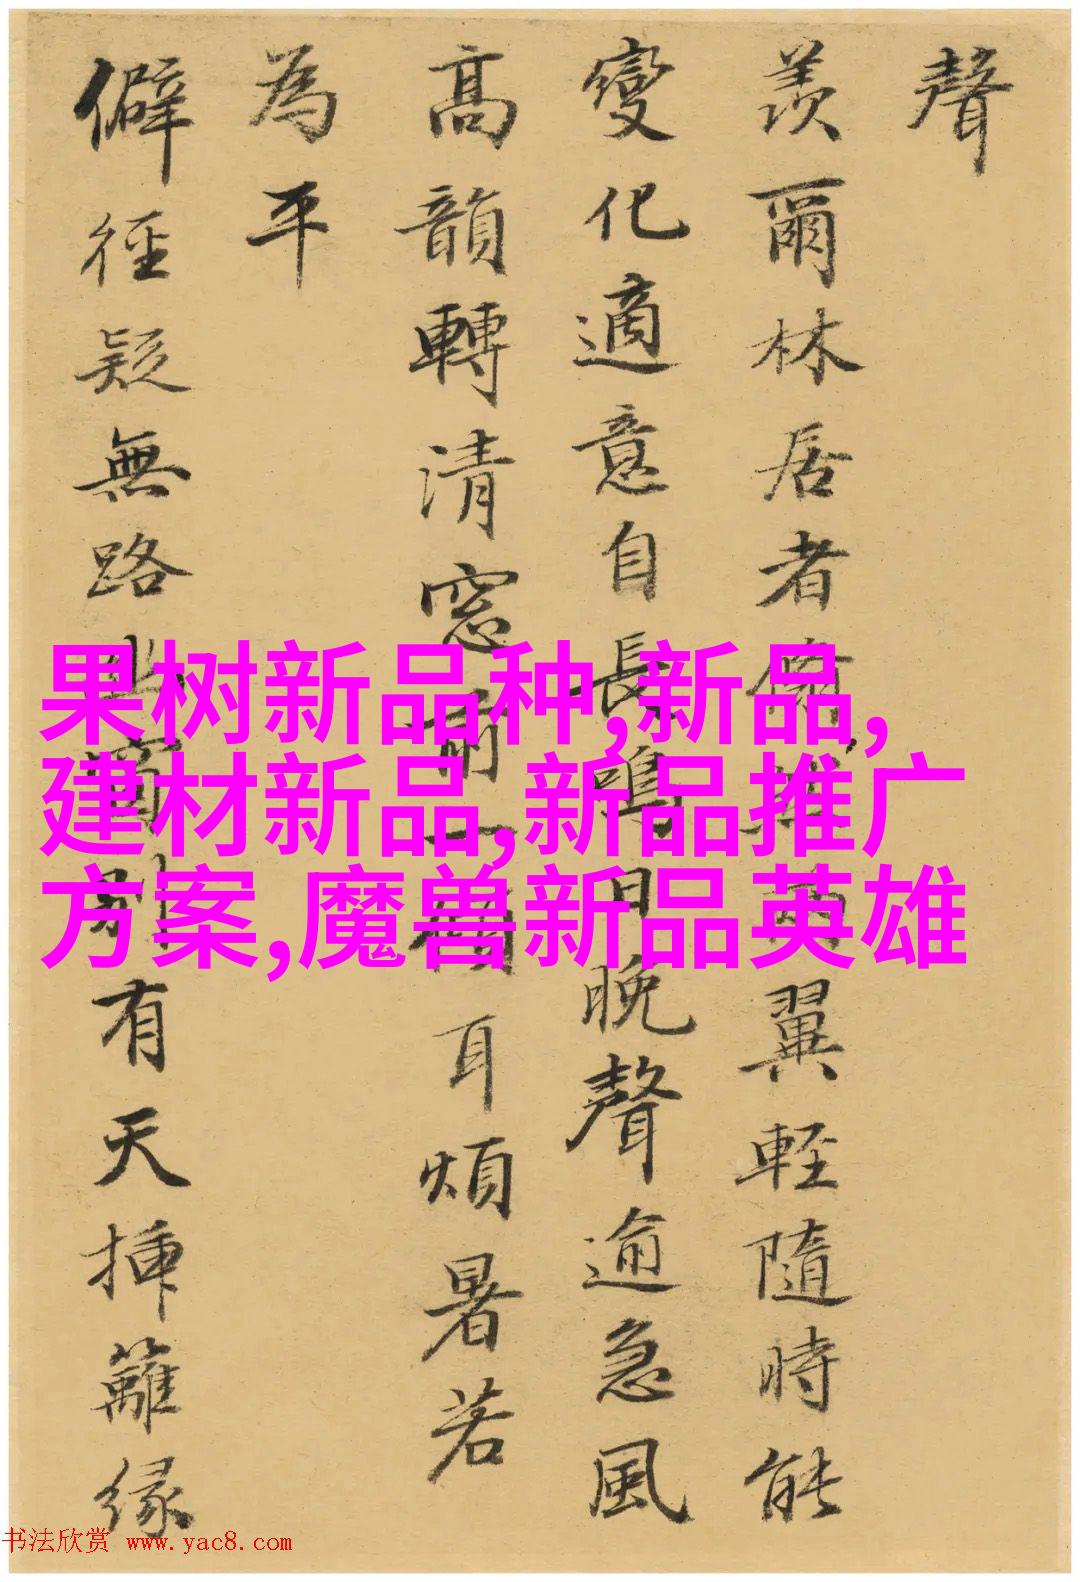 聲
羨爾林居者
翼輕隨時能
變化適意自長鳴日晚聲逾急風
高韻轉清窓前一
耳煩暑若
為平
僻徑疑無路
有天揷籬緣
果树新品种,新品,
建材新品,新品推广
方案,魔兽新品英雄
书法欣赏 www.yac8.com